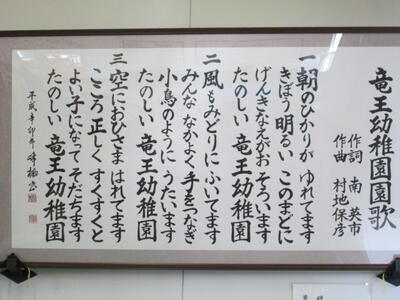 竜王幼稚園園歌
作詞 南 英市
作曲 村地保彦
一 朝のひかりが ゆれてます
きぼう明るい このまどに
げんきなえがお そろいます
たのしい 竜王幼稚園
二 風もみどりに ふいてます
みんな なかよく 手をつなぎ
小鳥のように うたいます
たのしい 竜王幼稚園
三 空におひさま はれてます
こころ正しく すくすくと
よい子になって そだちます
たのしい 竜王幼稚園
平成辛卯年